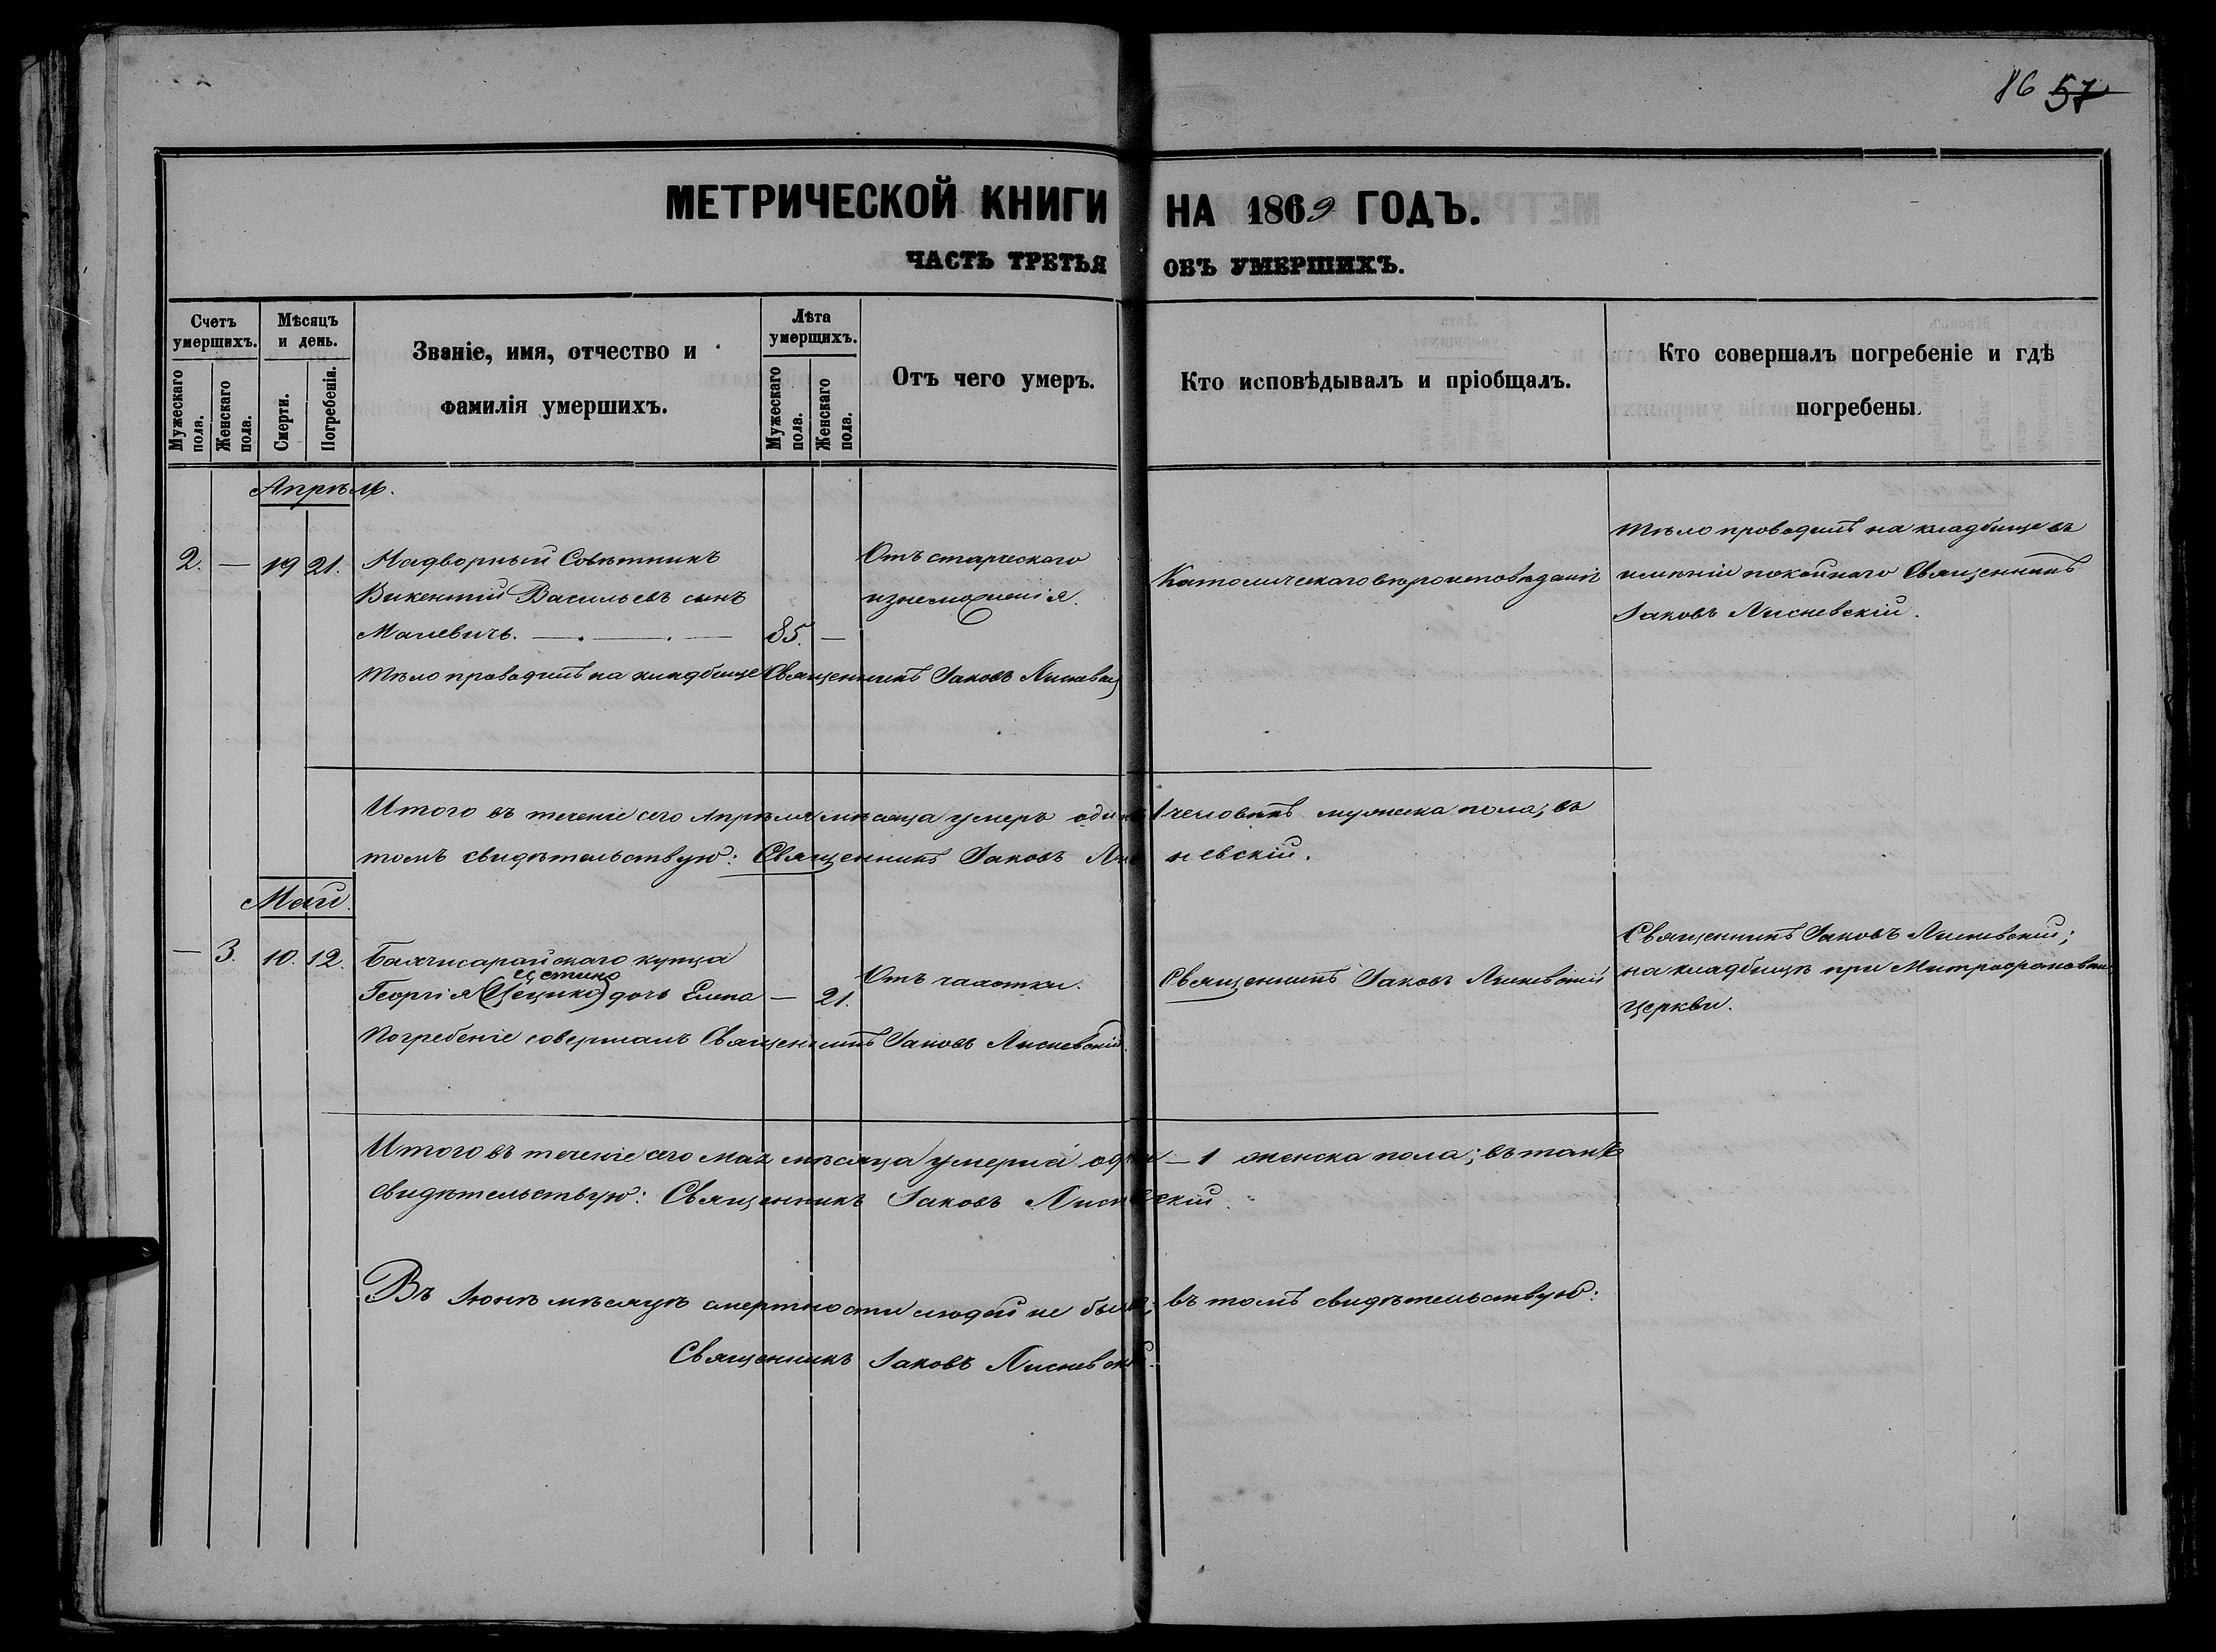 86 57
МЕТРИЧЕСКОЙ КНИГИ НА 1869 ГОДЪ.
ЧАСТЬ ТРЕТЬЯ ОБЪ УМЕРШИХЪ.
Счетъ умершихъ.
Мужескаго пола.
Женскаго пола.
Мѣсяцъ и день.
Смерти.
Погребенія.
Званіе, имя, отчество и
фамилія умершихъ.
Лѣта умерщихъ.
Мужескаго пола.
Женскаго пола.
Отъ чего умеръ.
Кто исповѣдывалъ и пріобщалъ.
Кто совершалъ погребеніе и гдѣ
погребены.
Апрѣль.
2. — 19 21.
Надворный Совѣтникъ
Викентий Васильевъ сынъ
Малевичъ. — 85. —
Тѣло проводилъ на кладбище Священникъ Іаковъ
Отъ старческаго
изнеможенія.
Католическаго вѣроисповѣданія
Тѣло проводилъ на кладбище въ
имѣніи покойнаго Священникъ
Іаковъ Лисневскій.
Итого въ теченіе сего Апрѣля мѣсяца умеръ одинъ 1 человѣкъ мужеска пола; въ
томъ свидѣтельствую: Священникъ Іаковъ Лисневскій.
Май.
— 3. 10. 12.
Бахчисарайскаго купца
Георгія дочь Елена — 21.
Погребеніе совершалъ Священникъ Іаковъ Лисневскій.
Отъ чахотки.
Священникъ Іаковъ Лисневскій
Священникъ Іаковъ Лисневскій;
на кладбищѣ при
Церкви.
Итого въ теченіе сего Мая мѣсяца умерла одна — 1 женска пола; въ томъ
свидѣтельствую: Священникъ Іаковъ Лисневскій.
Въ Іюнѣ мѣсяцѣ смертности людей не было; въ томъ свидѣтельствую:
Священникъ Іаковъ Лисневскій.